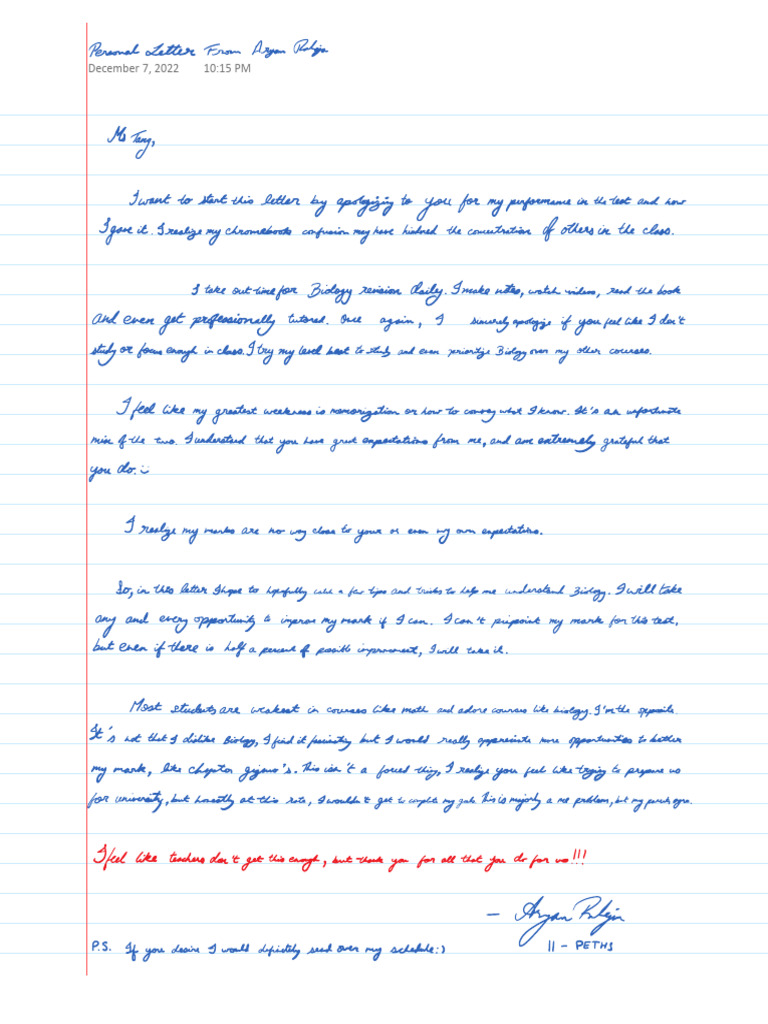 Personal Letter From Aryan
December 7, 2022 10:15 PM
Ms Tang,
I want to start this letter by apologizing to you for my performance in the test and how
I gave it. I realize my chromebooks confusion may have hindred the concentration of others in the class.
I take out time for Biology revision daily. I make notes, watch videos, read the book
and even get professionally tutored. Once again, I sincerely apologize if you feel like I don't
study or focus enough in class. I try my level best to study and even prioritize Biology over my other courses.
I feel like my greatest weakness is memorization or how to convey what I know. It's an unfortunate
mix of the two. I understand that you have great expectations from me, and am extremely grateful that
you do. :)
I realize my marks are no way close to your or even my own expectations.
So, in this letter I hope to hopefully a few tips and tricks to help me understand Biology. I will take
any and every opportunity to improve my mark if I can. I can't pinpoint my mark for this test,
but even if there is half a percent of possible improvement, I will take it.
Most students are weakest in courses like math and adore courses like biology. I'm the opposite.
It's not that I dislike Biology, I find it fascinating but I would really appreciate more opportunities to better
my mark, like chapter. This isn't a forced thing, I realize you feel like trying to prepare us
for university, but honestly at this rate, I wouldn't get to complete my goals. This is majorly a me problem, but my parents
I feel like teachers don't get this enough, but thank you for all that you do for us!!!
– Aryan
P.S. If you desire I would definitely send over my schedule :)
11 – PETHS